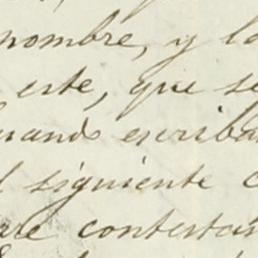 nombre, y la
este, que se
uando escriba
l siguiente c
re contestan